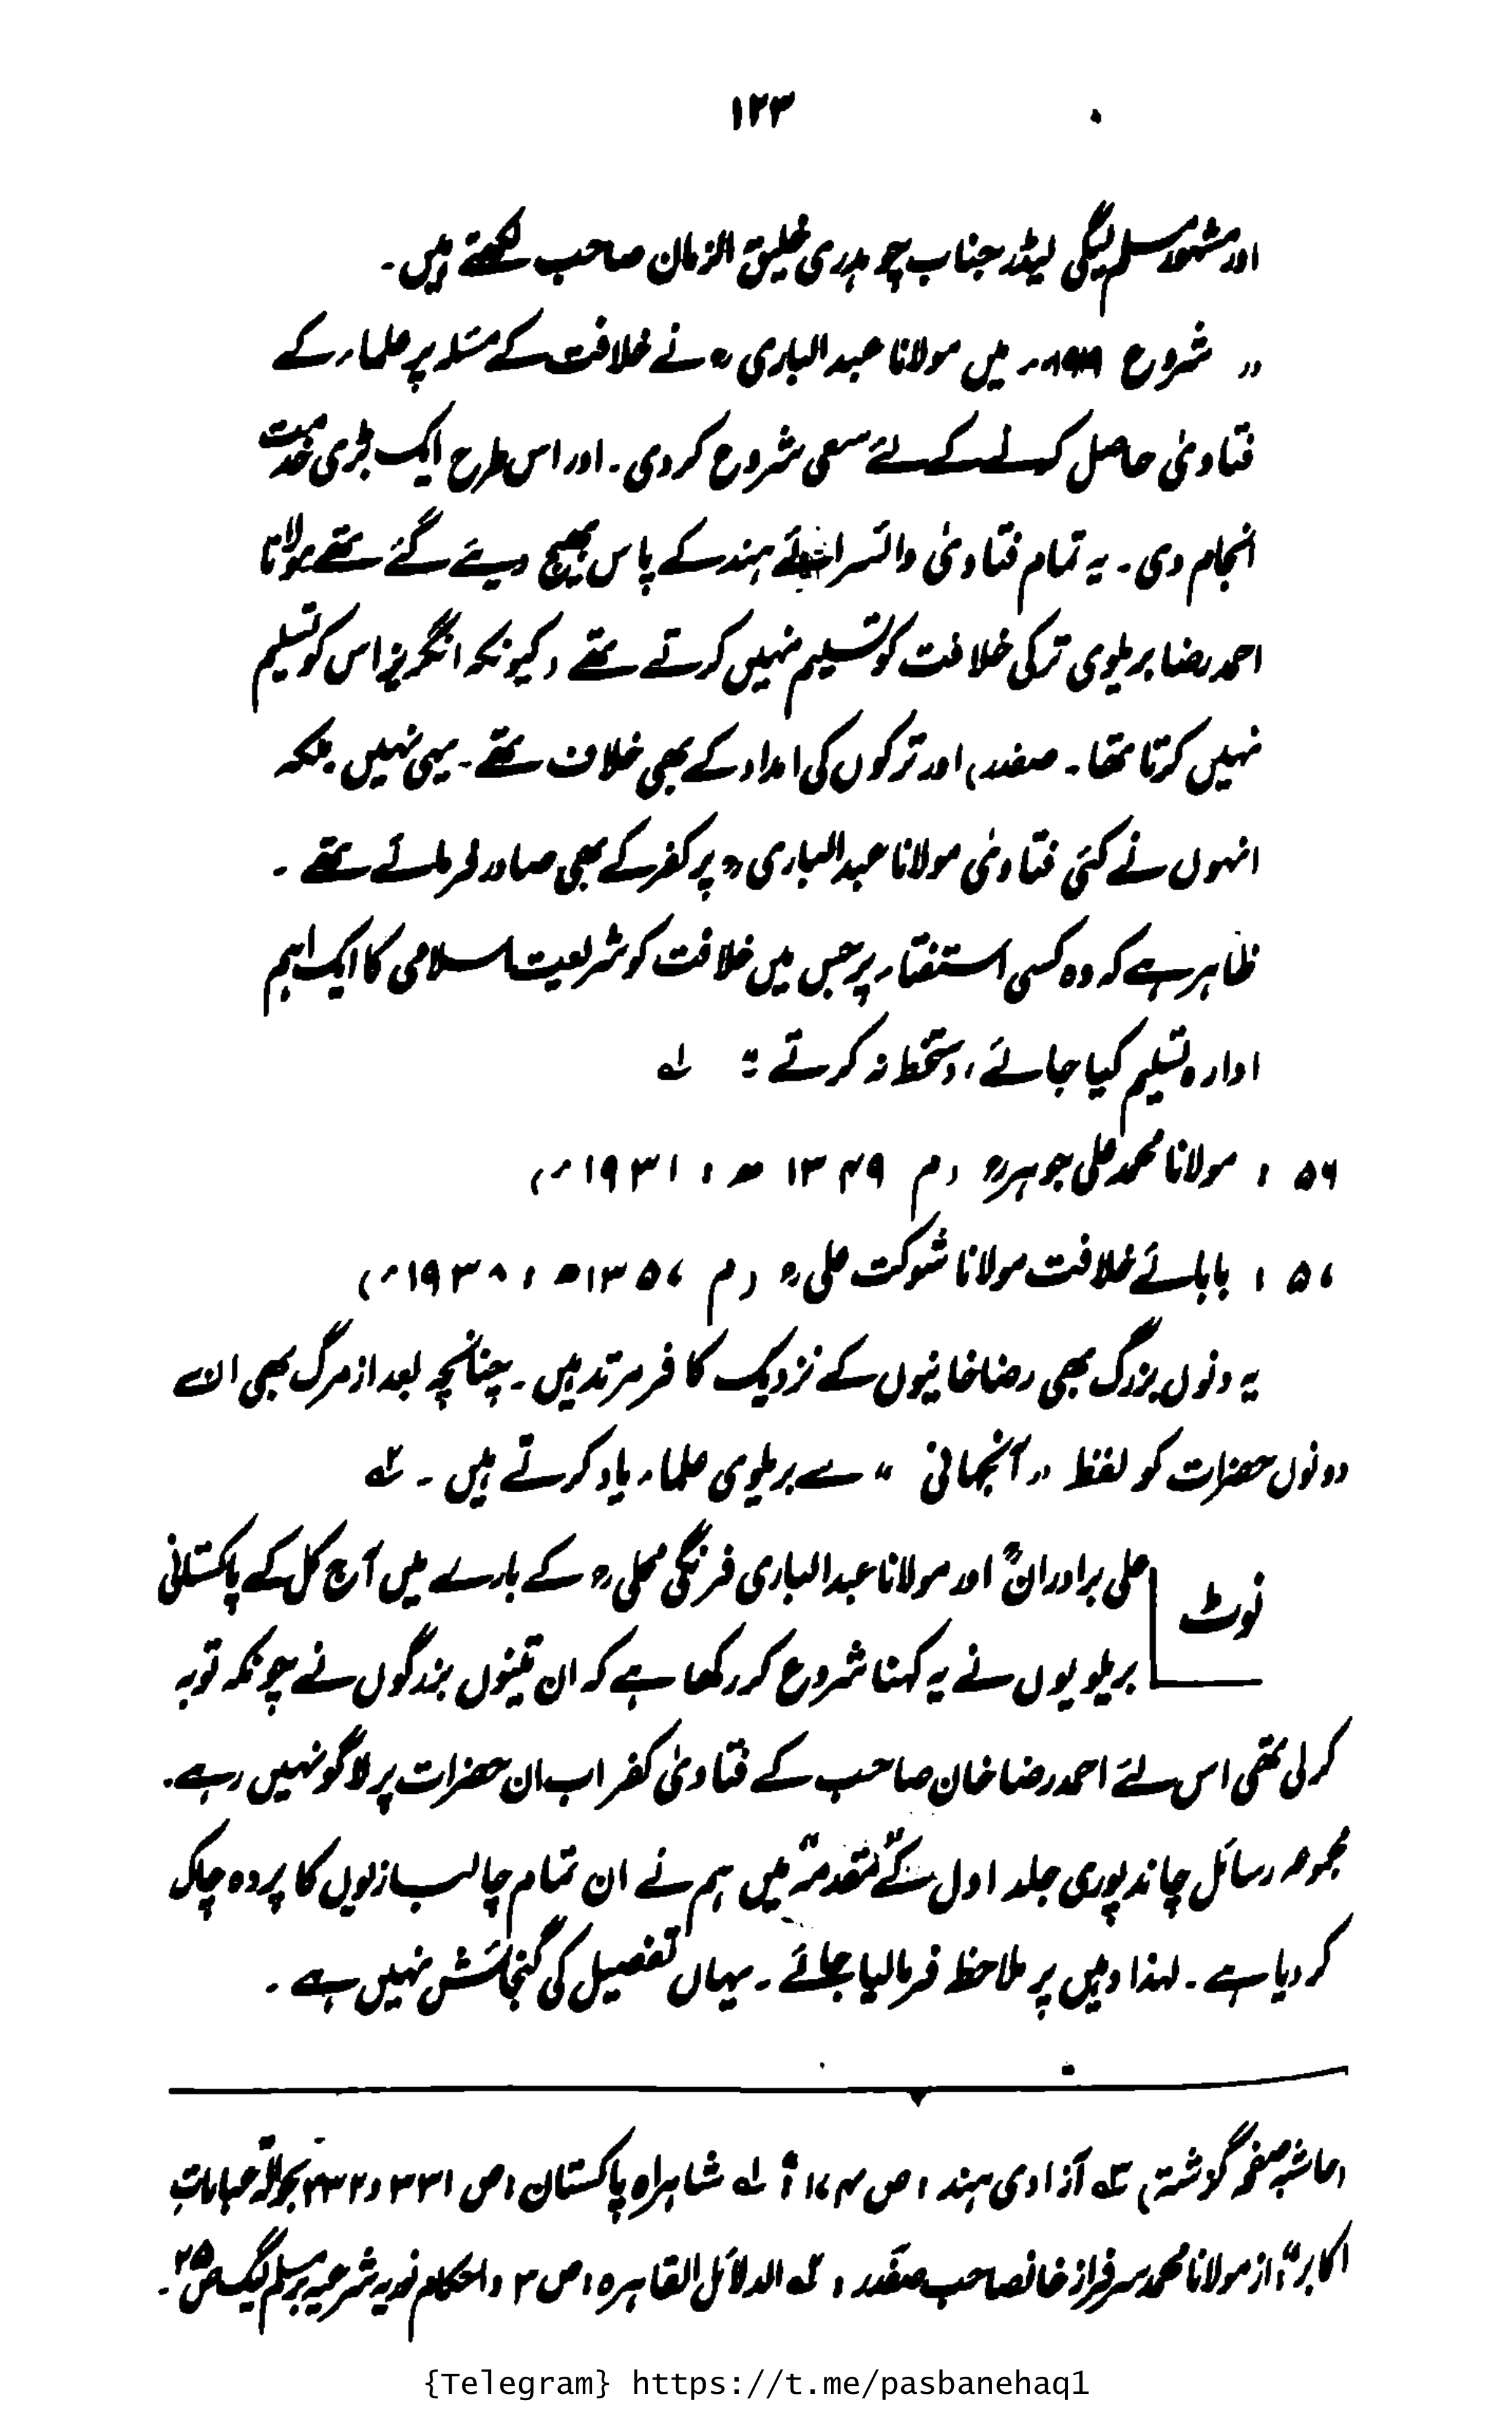 ۱۲۳
اور مشہور مسلم لیگی لیڈر جناب چوہدری خلیق الزمان صاحب لکھتے ہیں۔
" شروع ۱۹۱۹ء میں مولانا عبدالباری رح نے خلافت کے مسئلہ پر علماء کے
فتاویٰ حاصل کرنے کے لئے سعی شروع کر دی۔ اور اس طرح ایک بڑی خدمت
انجام دی۔ یہ تمام فتاویٰ وائسرائے ہند کے پاس بھیج دیے گئے تھے مولانا
احمد رضا بریلوی ترکی خلافت کو تسلیم نہیں کرتے تھے (کیونکہ انگریز اس کو تسلیم
نہیں کرتا تھا۔ صفدر) اور ترکوں کی امداد کے بھی خلاف تھے۔ یہی نہیں بلکہ
انہوں نے کئی فتاویٰ مولانا عبدالباری رح پر کفر کے بھی صادر فرمائے تھے ۔
ظاہر ہے کہ وہ کسی استفتاء پر جس میں خلافت کو شریعت اسلامی کا ایک اہم
ادارہ تسلیم کیا جائے، دستخط نہ کرتے " ؎۱
۵۶ : مولانا محمد علی جوہر رح (م ۱۳۴۹ھ : ۱۹۳۱ء)
۵۷ : بابائے خلافت مولانا شوکت علی رح (م ۱۳۵۷ھ : ۱۹۳۸ء)
یہ دونوں بزرگ بھی رضاخانیوں کے نزدیک کافر مرتد ہیں۔ چنانچہ بعد از مرگ بھی ان
دونوں حضرات کو لفظ " آنجہانی " سے بریلوی علماء یاد کرتے ہیں ۔ ؎۲
نوٹ علی برادران رح اور مولانا عبدالباری فرنگی محلی رح کے بارے میں آج کل کے پاکستانی
بریلویوں نے یہ کہنا شروع کر رکھا ہے کہ ان تینوں بزرگوں نے چونکہ توبہ
کر لی تھی اس لئے احمد رضا خان صاحب کے فتاویٰ کفر اب ان حضرات پر لاگو نہیں رہے۔
مجموعہ رسائل چاند پوری جلد اول کے "مقدمہ" میں ہم نے ان تمام چالبازیوں کا پردہ چاک
کر دیا ہے ۔ لہذا وہیں پر ملاحظہ فرما لیا جائے ۔ یہاں تفصیل کی گنجائش نہیں ہے ۔
(حاشیہ صفحہ گزشتہ) ؎۳ آزادی ہند : ص ۱۷۴ : ؎۱ شاہراہ پاکستان : ص ۳۳۱ و ۳۳۲ بحوالہ "عبارات
اکابر" از مولانا محمد سرفراز خانصاحب صفدر : ؎۲ الدلائل القاہرہ : ص ۳ و احکام نوریہ شرعیہ بر مسلم لیگ ص ۲۵ ۔
{Telegram} https://t.me/pasbanehaq1